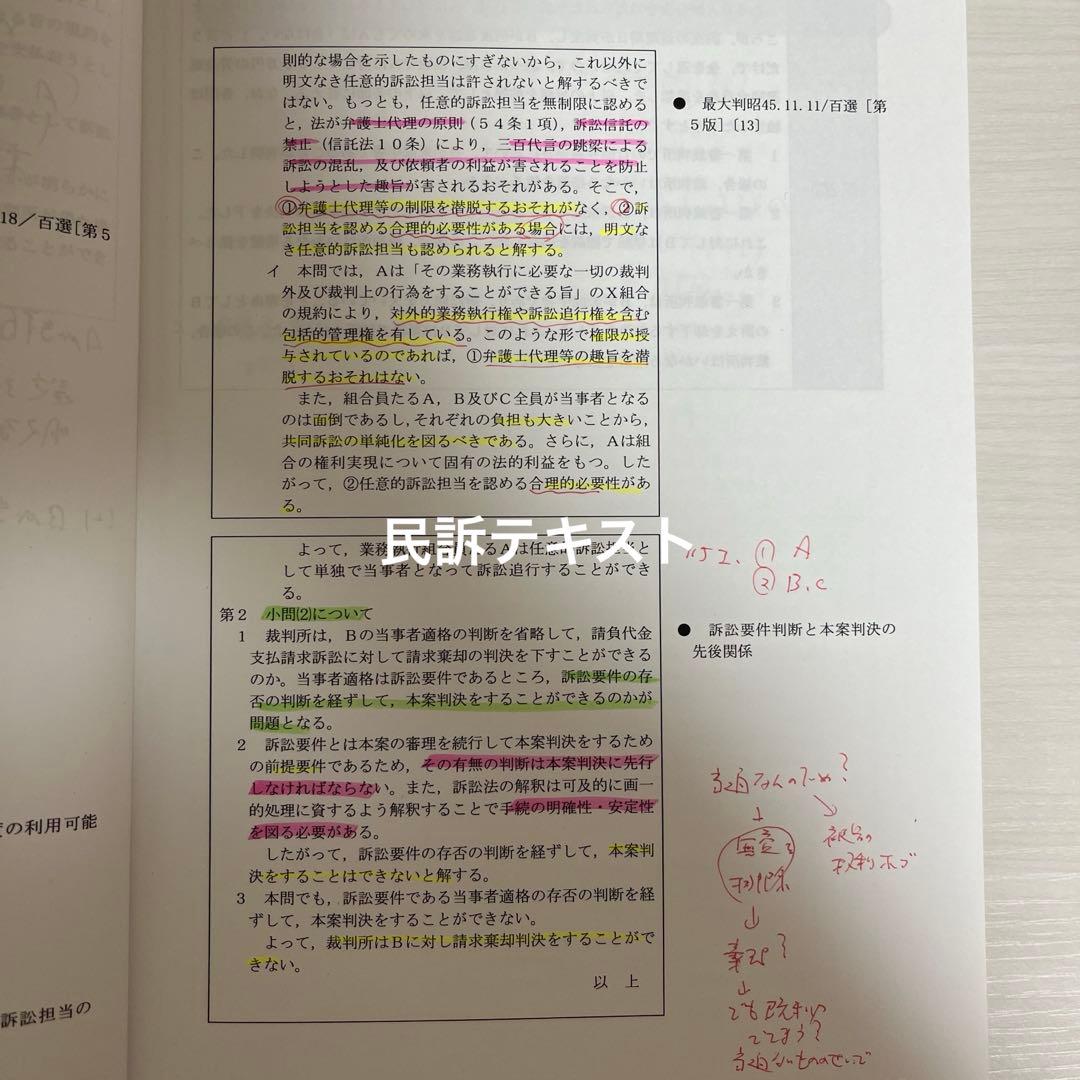 則的な場合を示したものにすぎないから，これ以外に
明文なき任意的訴訟担当は許されないと解するべきで
はない。もっとも，任意的訴訟担当を無制限に認める
と，法が弁護士代理の原則（５４条１項），訴訟信託の
禁止（信託法１０条）により，三百代言の跳梁による
訴訟の混乱，及び依頼者の利益が害されることを防止
しようとした趣旨が害されるおそれがある。そこで，
①弁護士代理等の制限を潜脱するおそれがなく，②訴
訟担当を認める合理的必要性がある場合には，明文な
き任意的訴訟担当も認められると解する。
イ　本問では，Ａは「その業務執行に必要な一切の裁判
外及び裁判上の行為をすることができる旨」のＸ組合
の規約により，対外的業務執行権や訴訟追行権を含む
包括的管理権を有している。このような形で権限が授
与されているのであれば，①弁護士代理等の趣旨を潜
脱するおそれはない。
また，組合員たるＡ，Ｂ及びＣ全員が当事者となる
のは面倒であるし，それぞれの負担も大きいことから，
共同訴訟の単純化を図るべきである。さらに，Ａは組
合の権利実現について固有の法的利益をもつ。した
がって，②任意的訴訟担当を認める合理的必要性があ
る。
● 最大判昭45.11.11/百選［第
５版］〔13〕
18／百選［第５
民訴テキスト
よって，業務執
Ａは任意的訴訟担当と
して単独で当事者となって訴訟追行することができ
る。
① A
② B、C
第２　小問⑵について
１　裁判所は，Ｂの当事者適格の判断を省略して，請負代金
支払請求訴訟に対して請求棄却の判決を下すことができる
のか。当事者適格は訴訟要件であるところ，訴訟要件の存
否の判断を経ずして，本案判決をすることができるのかが
問題となる。
２　訴訟要件とは本案の審理を続行して本案判決をするため
の前提要件であるため，その有無の判断は本案判決に先行
しなければならない。また，訴訟法の解釈は可及的に画一
的処理に資するよう解釈することで手続の明確性・安定性
を図る必要がある。
したがって，訴訟要件の存否の判断を経ずして，本案判
決をすることはできないと解する。
３　本問でも，訴訟要件である当事者適格の存否の判断を経
ずして，本案判決をすることができない。
よって，裁判所はＢに対し請求棄却判決をすることがで
きない。
以　上
● 訴訟要件判断と本案判決の
先後関係
度の利用可能
訴訟担当の